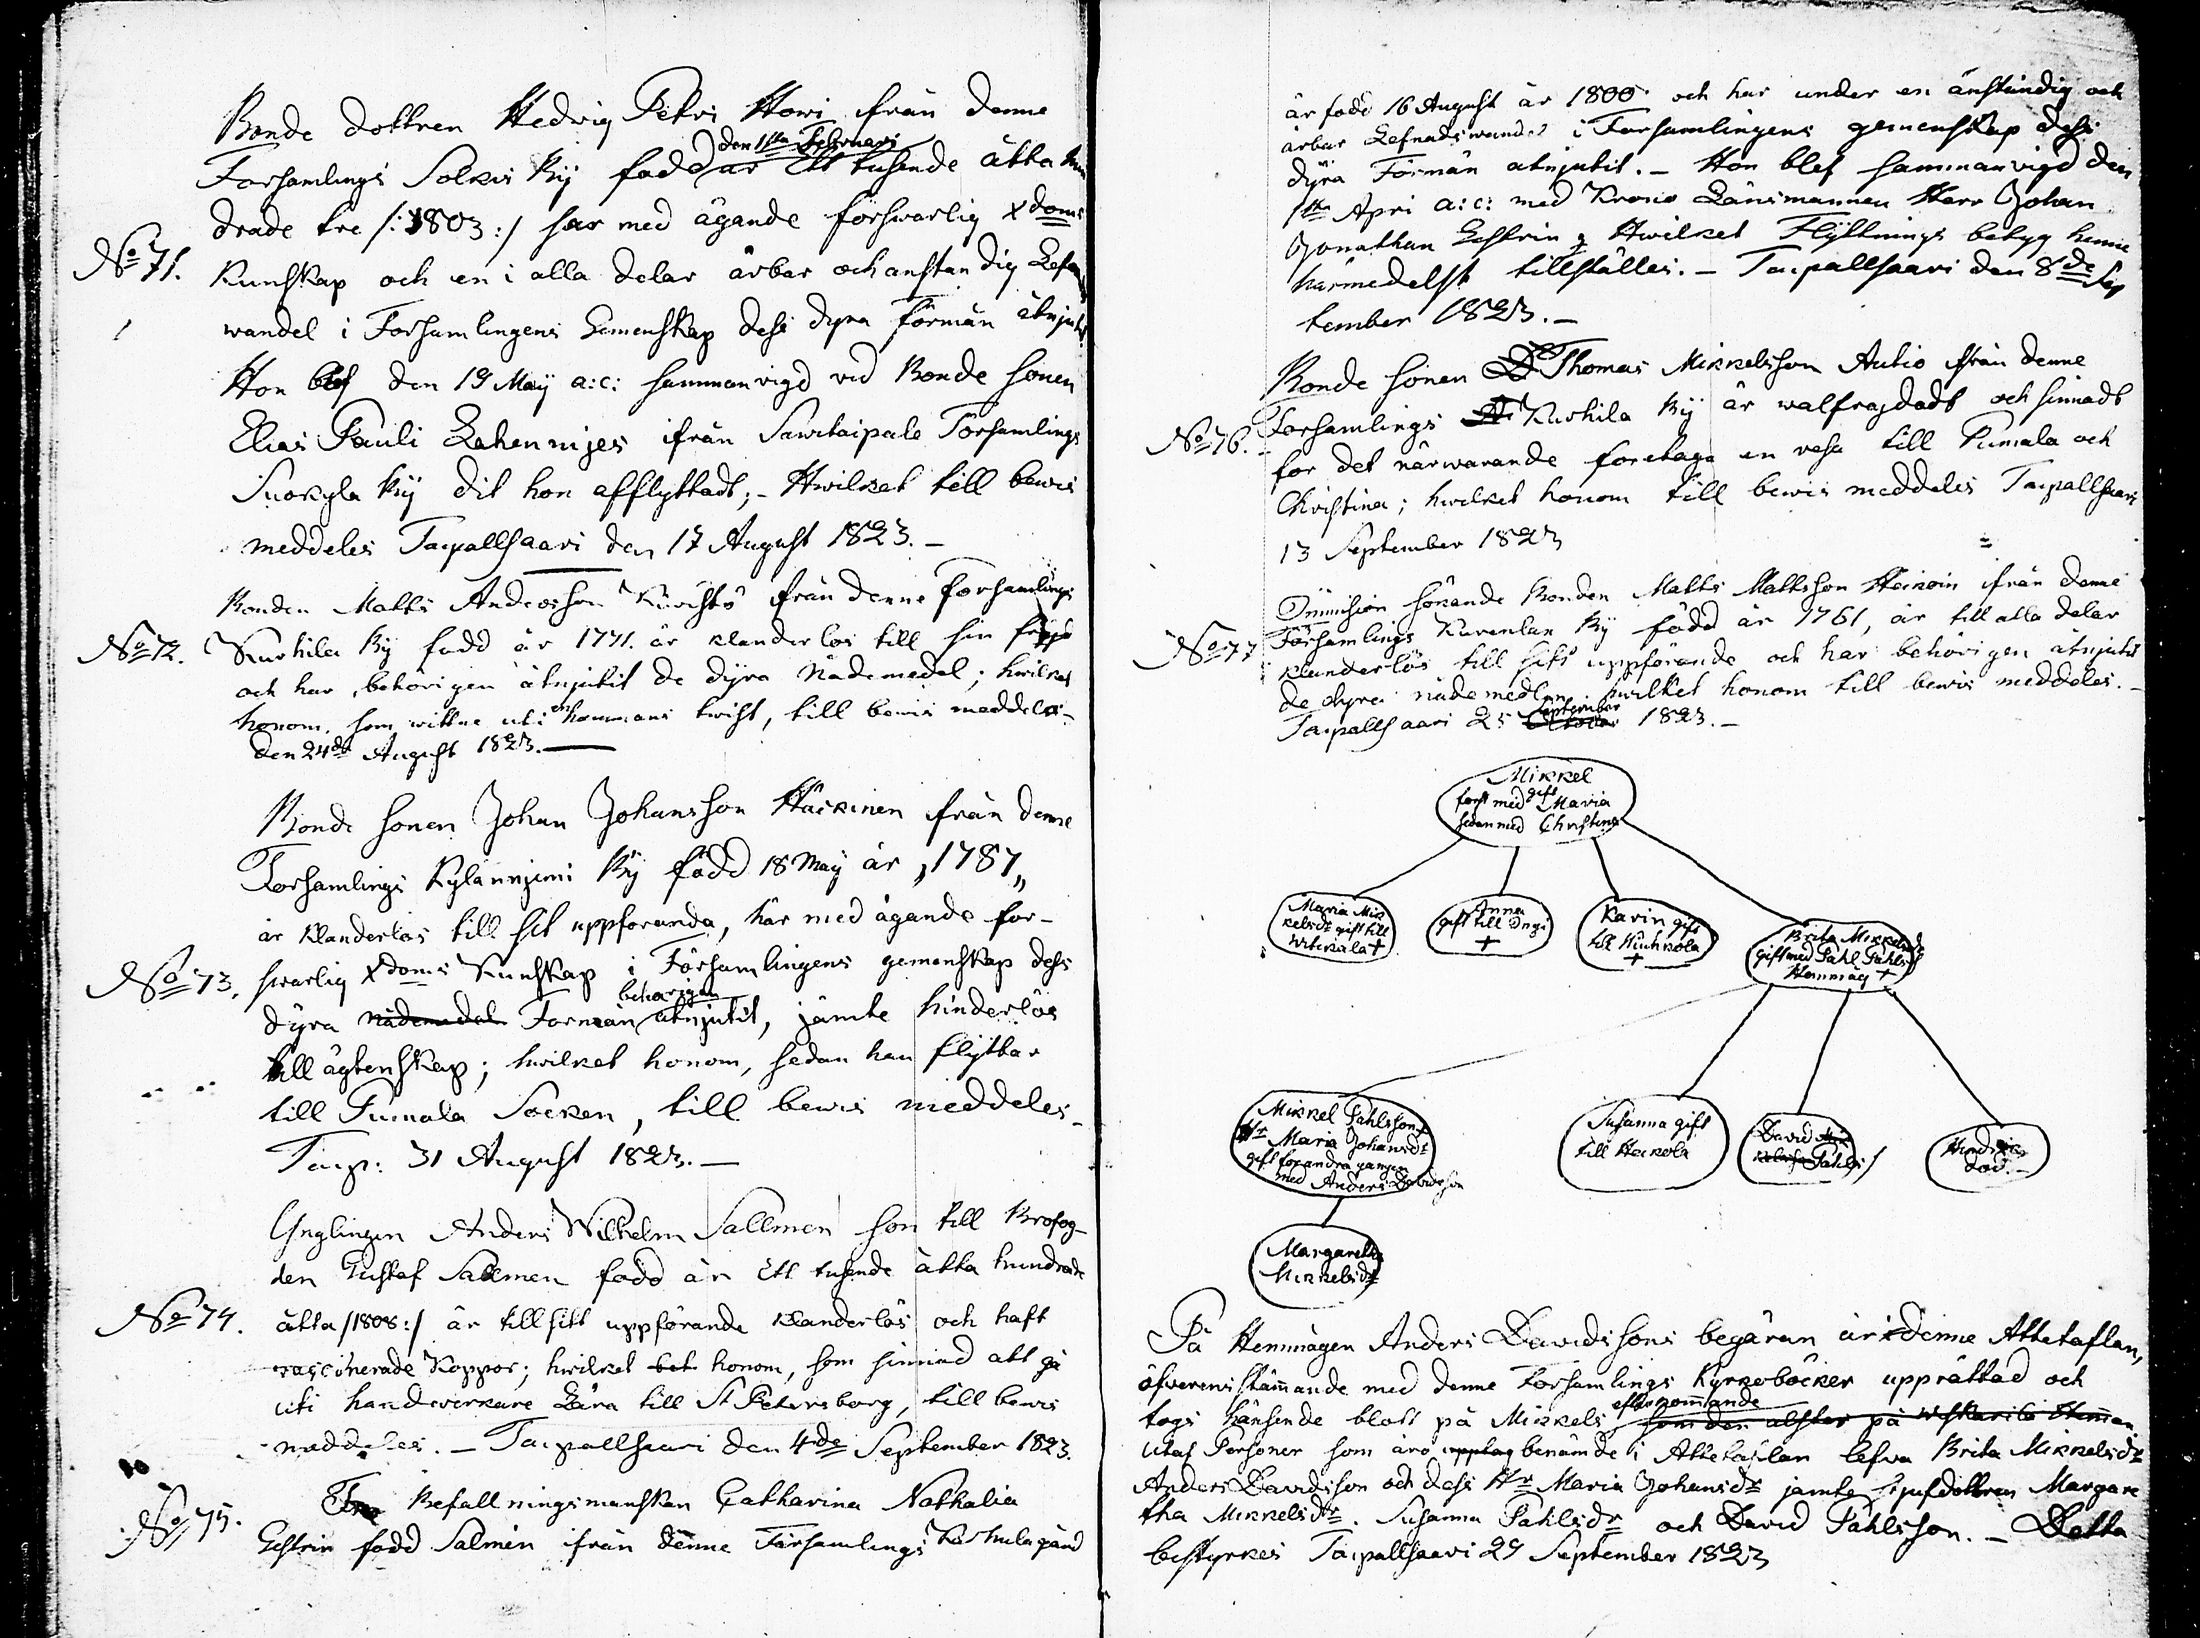 Bonde dottren Hedvig Petri Howi från denne
den 1sta Februari
Forsamlings Solkis By född år Ett tusende åtta hun
drade tre /: 1803 :/ har med ägande förswarlig Xdoms
No 71. Kunskap och en i alla delar ärbar och anständig Lefnads
wandel i Forsamlingens Gemenskap dess dyra Förmån åtnjutit
Hon blef den 19 Maÿ a:c: sammanvigd vid Bonde sonen
Elias Pauli ifrån Sawitaipale Forsamlings
Suokyla By dit hon afflyttadt; - Hwilket till bewis
meddeles Taipallsaari den 17 August 1823. -
Bonden Matts Andersson från denne Forsamlings
No 72. Kurhila By född år 1771. är klanderlös till sin
och har behörigen åtnjutit de dyra Nådemedel; hwilket
honom, som wittne uti en hommans twist, till bewis meddeles -
den 24de August 1823. -
Bonde sonen Johan Johansson Häckinen från denne
Forsamlings Kylänniemi By född 18 Maÿ år ,,1787,,
är Klanderlös till sit uppförande, har med ägande för-
No 73. swarlig Xdoms Kunskap i Församlingens gemenskap dess
behörigen
dÿra Nådemedel Förmån åtnjutit, jämte hinderlös
till ägtenskap; hwilket honom, sedan han flÿttar
till Pumala Socken, till bewis meddeles -
Taip: 31 August 1823. -
Ynglingen Anders Wilhelm Sallmen son till Brofog-
den Gustaf Sallmen född år Ett tusende åtta hundrade
No 74. åtta /1808:/ är till sitt uppförande Klanderlös och haft
vaccinerade Koppor; hwilket honom, som sinnad att gå
uti handwerkare Lära till St Petersborg, till bewis
meddeles. - Taipallsaari den 4de September 1823.
No 75. Befallningsmanskan Catharina Nathalia
Gestrin född Salmén ifrån denne Församlings gård
är född 16 August år 1800 och har under en anständig och
ärbar Lefnadswandel i Forsamlingens gemenskap dess
dÿra Förmån atnjutit. - Hon blef sammanvigd den
1ste Apri a:c: med Krono Länsmannen Herr Johan
Jonathan Gestrin; Hwilket Flÿttnings betyg henne
härmedelst tillställes. - Taipallsaari den 8de Sep
tember 1823. -
Bonde sonen Thomas Mikkelsson Autio från denne
No 76. Forsamlings Kurhila By är walfragdadt och sinnadt
for det närwarande foretaga en resa till Pumala och
Christina; hwilket honom till bewis meddeles Taipallsaari
13 September 1823
sökande Bonden Matts Mattsson Heikoin ifrån denne
No 77 Församlings By född år 1761, är till alla delar
klanderlös till sitt uppförande och har behörigen åtnjutit
de dyra nådemedlen; hwilket honom till bewis meddeles. -
September
Taipallsaari 25 October 1823. -
Mikkel
gift
först med Maria
sedan med Christina
Maria Mik
kelsdr gift till
†
Anna
gift till Ingi
†
Karin gift
till Kiuhkola
†
Brita Mikkelsdr
gift med Påhl Påhls
Hemmåg †
Mikkel Påhlsson †
Hr Maria Johansdr
gift för andra gangen
med Anders Davidsson
Susanna gift
till Heikola
David
Påhls
död. -
Margaretha
Mikkelsdr
På Hemmågen Anders Davidssons begäran är denne Attetaflan,
öfverensstämmande med denne Forsamlings Kyrkoböcker upprättad och
efterkommande
togs hänseende blott på Mikkels som den alster på
Utaf Personer som äro upptag benämde i Attetaflan lefva Brita Mikkelsdr
Anders Davidsson och dess Hr Maria Johansdr jämte Stjufdottren Margare
tha Mikkelsdr. Susanna Påhlsdr och David Påhlsson. - Detta
bestyrkes Taipallsaari 29 September 1823